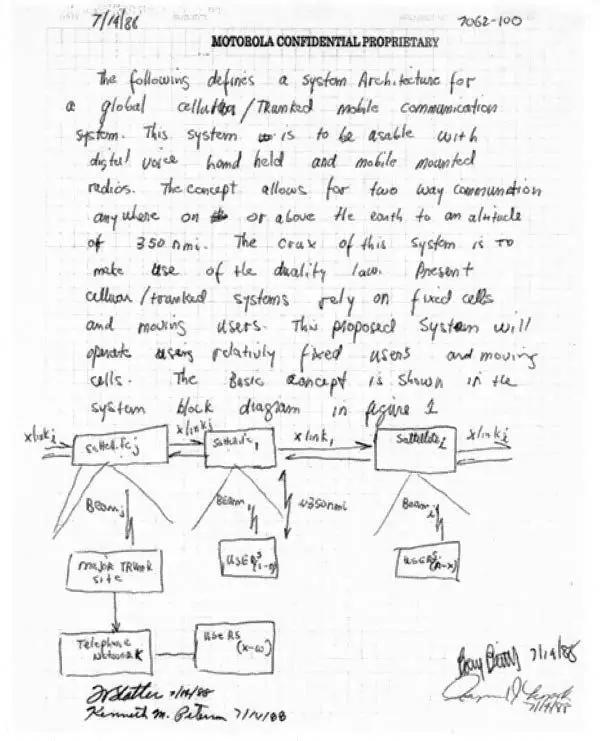 7/14/88 7062-100
MOTOROLA CONFIDENTIAL PROPRIETARY
The following defines a system Architecture for
a global cellular/Trunked mobile communication
system. This system is to be usable with
digital voice hand held and mobile mounted
radios. The concept allows for two way communition
any where on or above the earth to an altitude
of 350 nmi. The crux of this system is to
make use of the duality law. Present
cellular/trunked systems rely on fixed cells
and moving users. This proposed System will
operate using relativly fixed users and moving
cells. The Basic concept is shown in the
system block diagram in figure 1
xlinki satellitej xlinkj satellite1 xlink1 Satellitei xlinki
Beamj Beam1 ~350nmi Beami
major TRUNK
site
USERS
(1-n)
USERS
(n-x)
Telephone
Network
USERS
(x-ω)
7/14/88
7/14/88
Kenneth M. Peterson 7/14/88
7/14/88